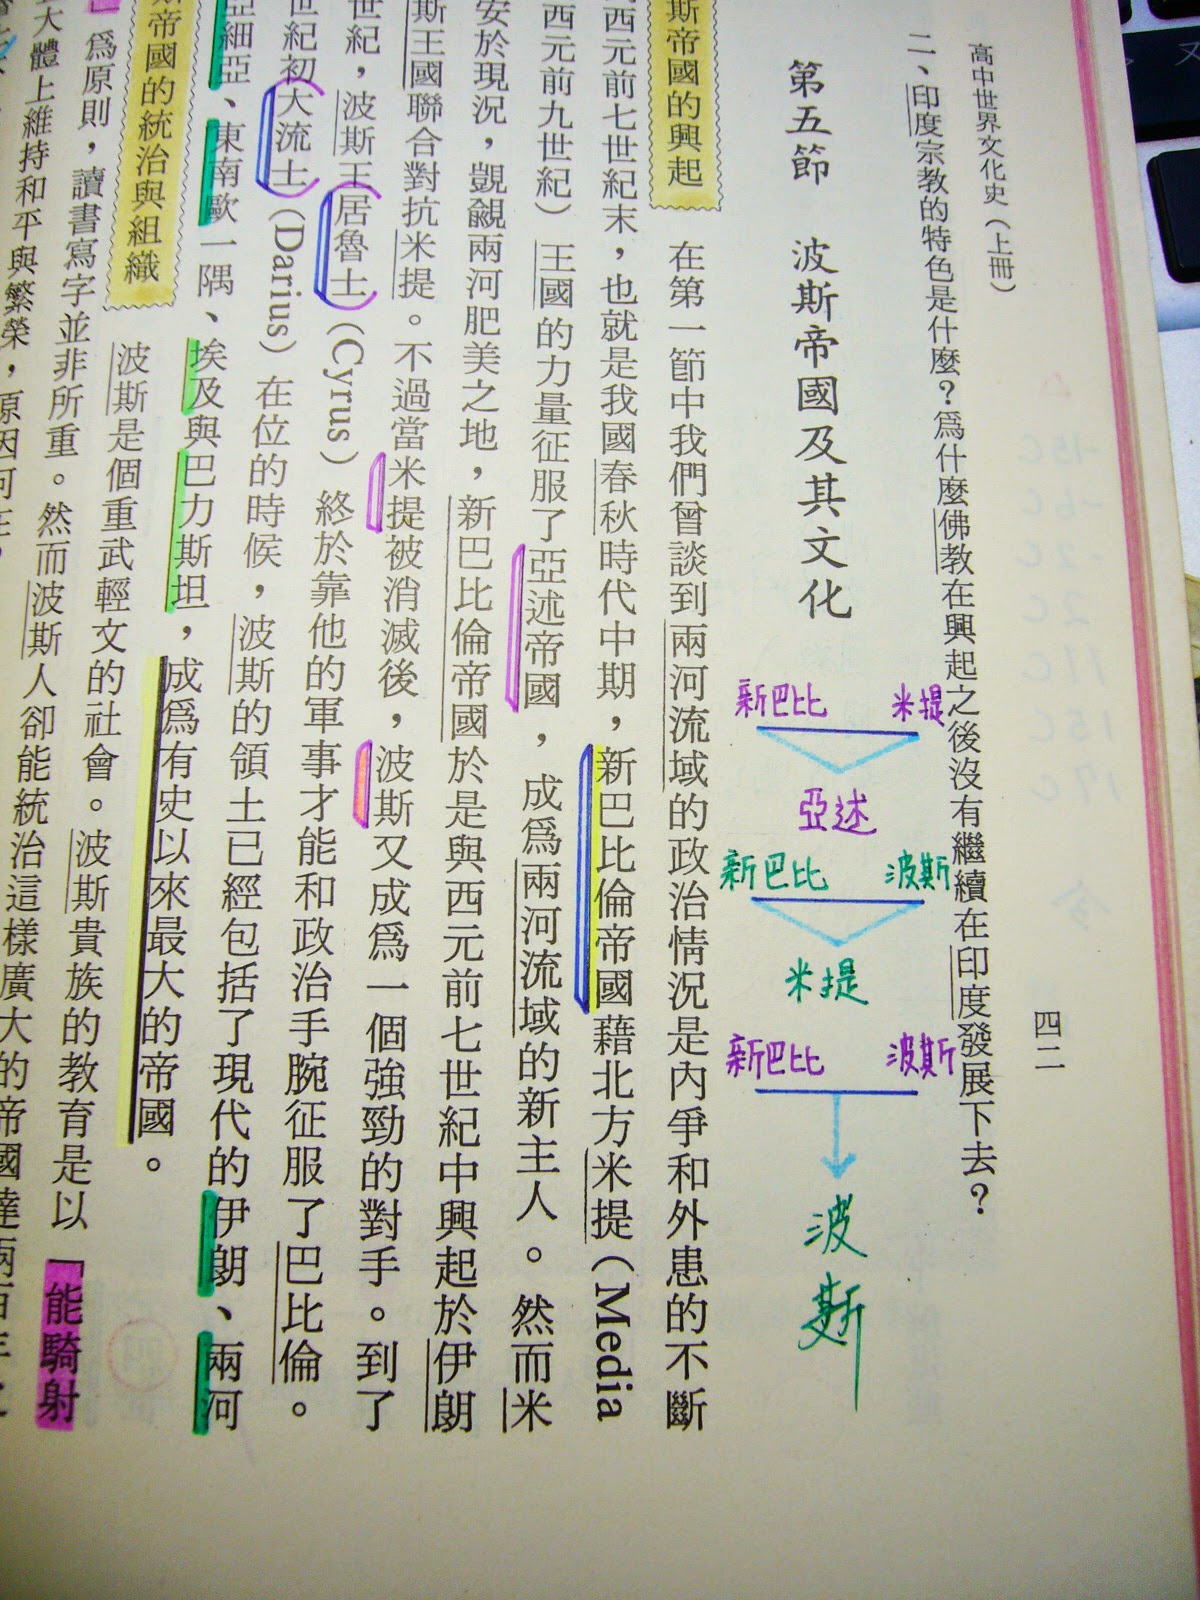 高中世界文化史（上冊）
四二
二、印度宗教的特色是什麼？爲什麼佛教在興起之後沒有繼續在印度發展下去？
第五節　波斯帝國及其文化
新巴比　米提
亞述
新巴比　波斯
米提
新巴比　波斯
波斯
斯帝國的興起
在第一節中我們曾談到兩河流域的政治情況是內爭和外患的不斷
西元前七世紀末，也就是我國春秋時代中期，新巴比倫帝國藉北方米提（Media
西元前九世紀）王國的力量征服了亞述帝國，成爲兩河流域的新主人。然而米
安於現況，覬覦兩河肥美之地，新巴比倫帝國於是與西元前七世紀中興起於伊朗
斯王國聯合對抗米提。不過當米提被消滅後，波斯又成爲一個強勁的對手。到了
世紀，波斯王居魯士（Cyrus）終於靠他的軍事才能和政治手腕征服了巴比倫。
世紀初大流士（Darius）在位的時候，波斯的領土已經包括了現代的伊朗、兩河
亞細亞、東南歐一隅、埃及與巴力斯坦，成爲有史以來最大的帝國。
斯帝國的統治與組織
波斯是個重武輕文的社會。波斯貴族的教育是以「能騎射
」爲原則，讀書寫字並非所重。然而波斯人卻能統治這樣廣大的帝國達兩百年之
大體上維持和平與繁榮，原因何在？